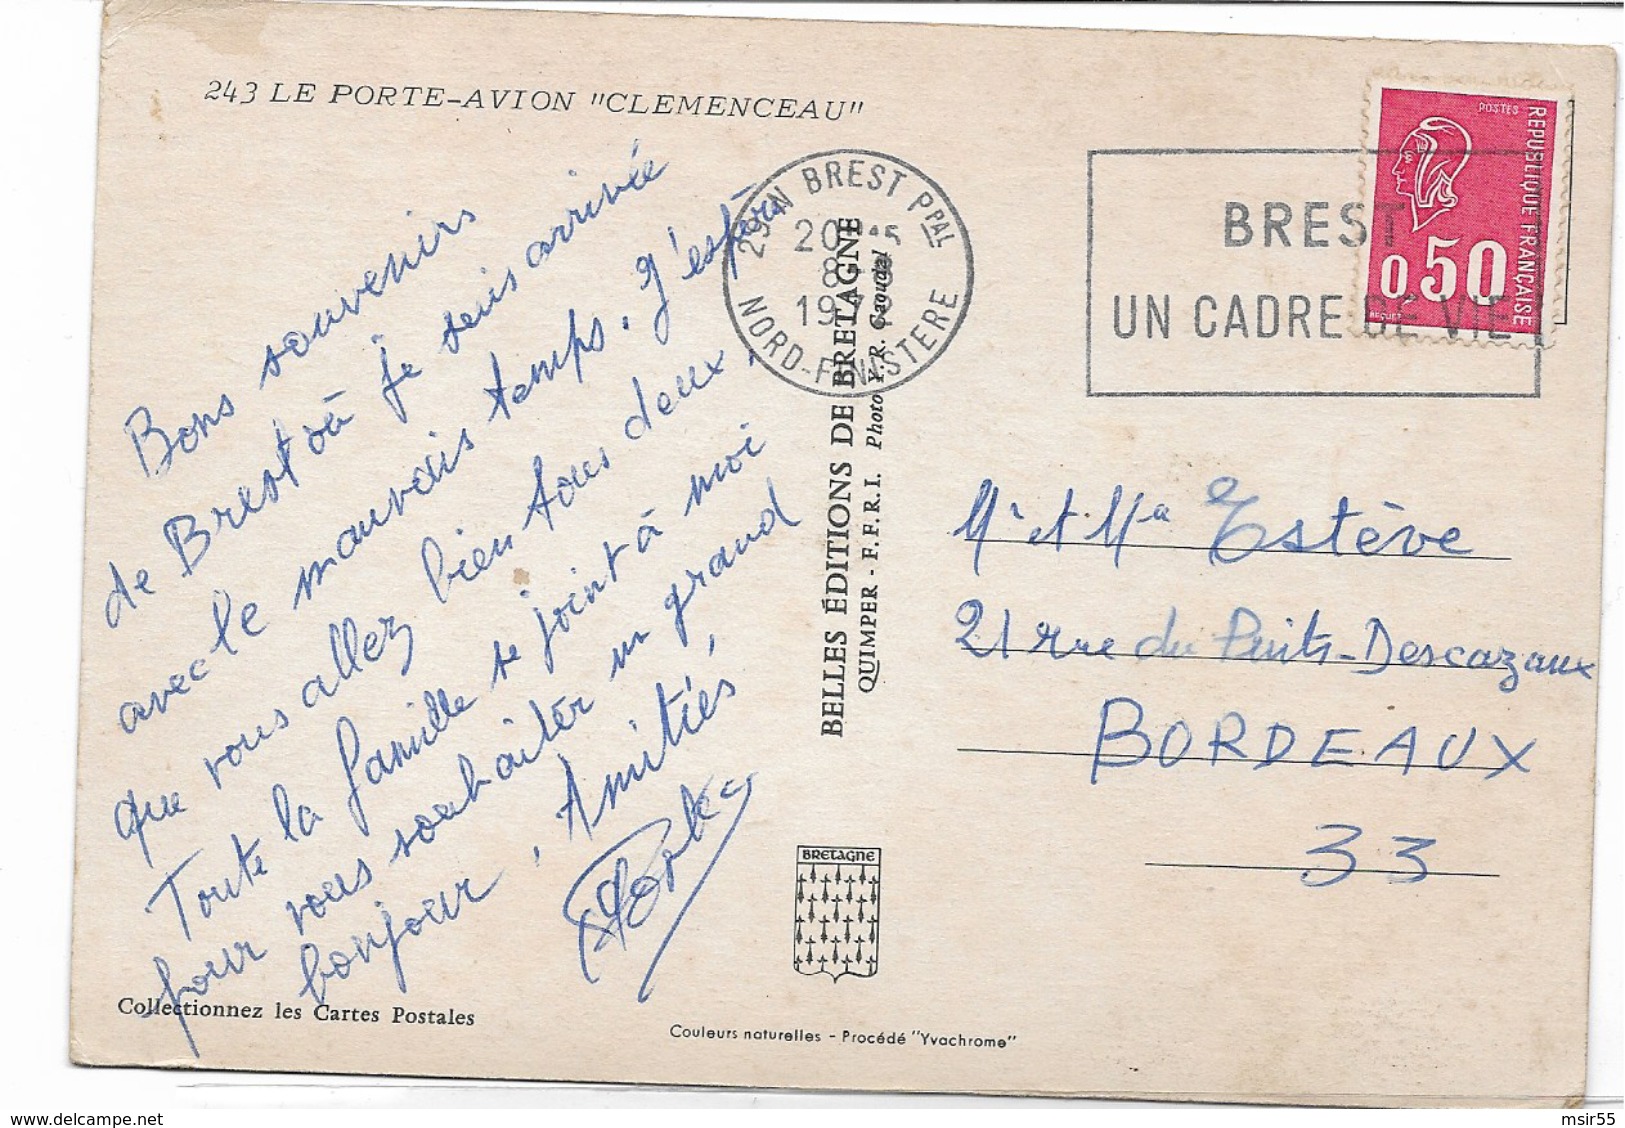 243 LE PORTE-AVION "CLEMENCEAU"
Bons souvenirs
de Brest où je suis arrivée
avec le mauvais temps. J'espère
que vous allez bien tous deux.
Toute la famille se joint à moi
pour vous souhaiter un grand
bonjour. Amitiés,
29N BREST PPAL
20
8
197
NORD-FINISTERE
BREST
UN CADRE DE VIE
POSTES
REPUBLIQUE FRANÇAISE
0,50
BEQUET
BELLES ÉDITIONS DE BRETAGNE
QUIMPER - F.F.R.I. Photo Y.R. Caoudal
Mr et Me Estève
21 rue du Puits-Descazaux
BORDEAUX
33
BRETAGNE
Collectionnez les Cartes Postales
Couleurs naturelles - Procédé "Yvachrome"
msir55